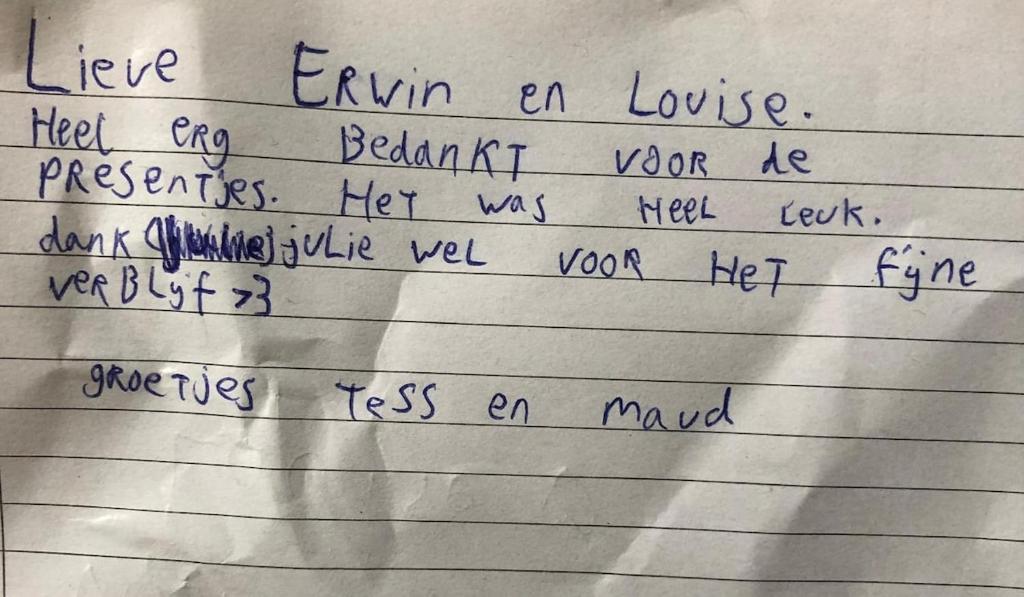 Lieve Erwin en Louise.
Heel erg Bedankt voor de
presentjes. Het was Heel leuk.
dank julie wel voor Het fijne
verblijf >3
groetjes Tess en maud